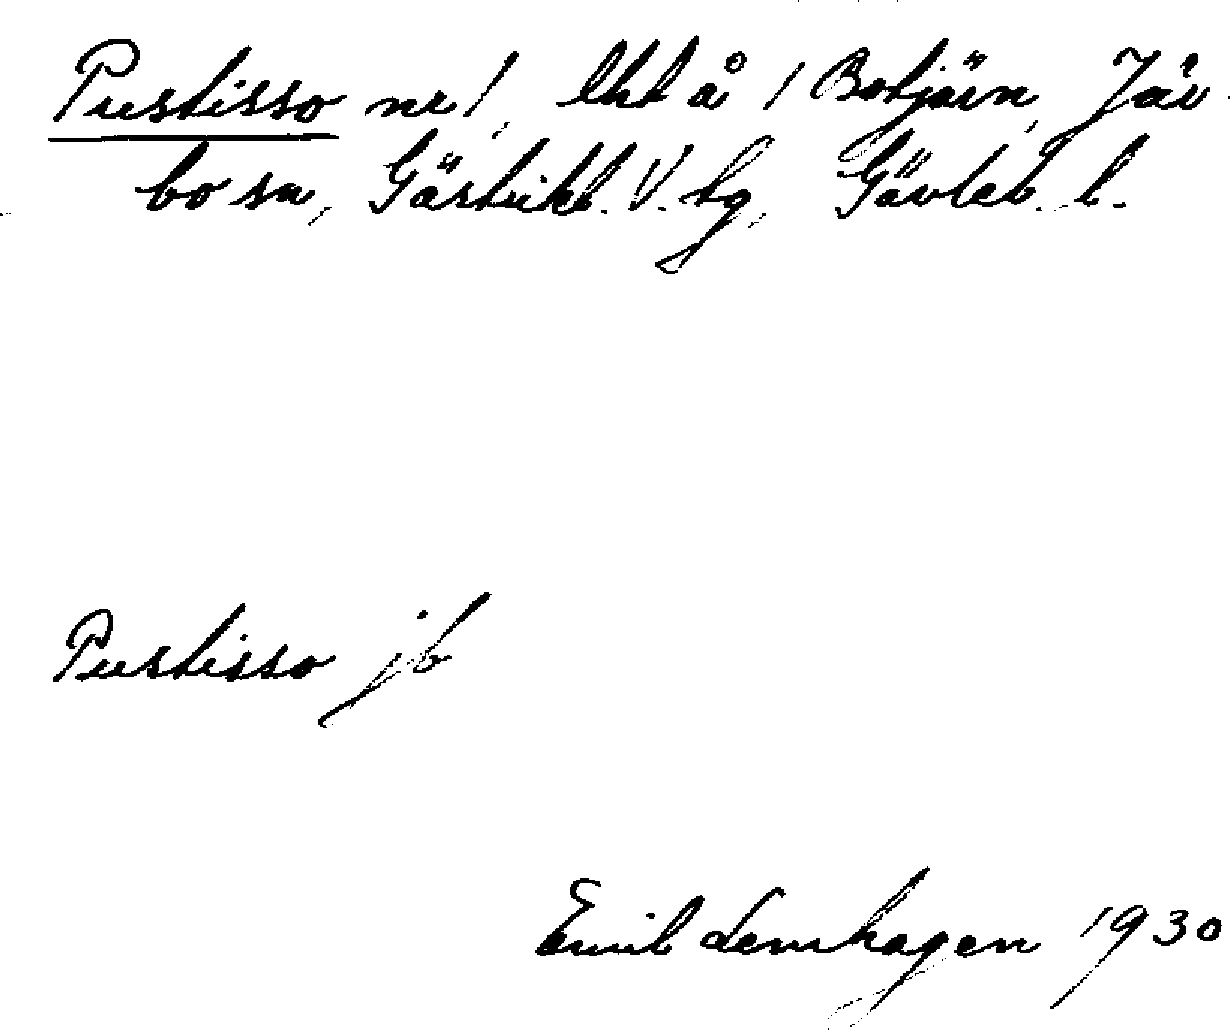 Pustisso nr 1, lht å 1 Botjärn, Jär-
bo sn, Gästrikl. V. tg, Gävleb. l.
Pustisso jb
Emil Lemhagen 1930